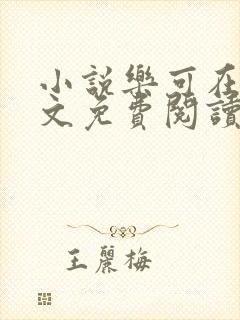 小説樂可在
文免費閱讀
王麗梅